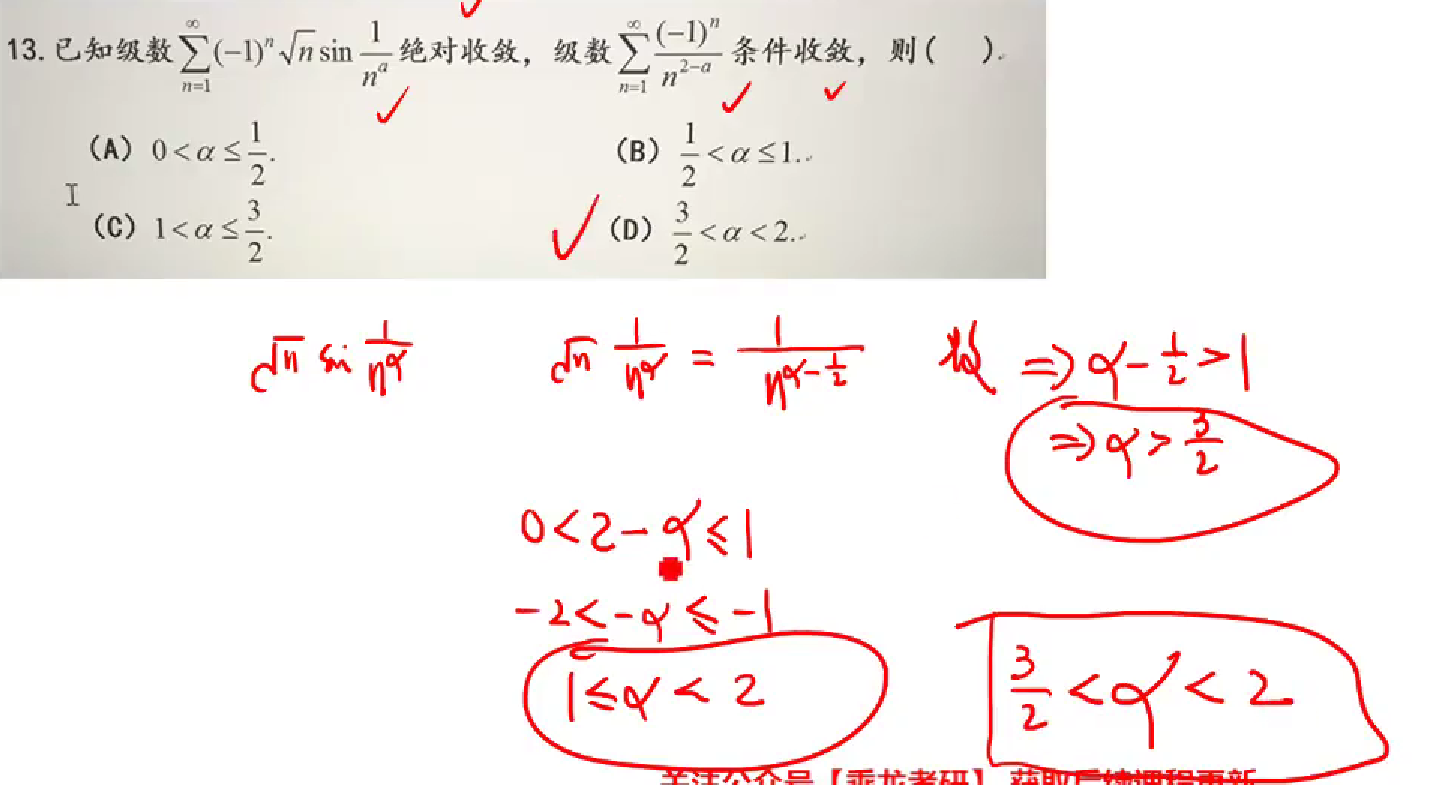 13. 已知级数 $\sum_{n=1}^{\infty}(-1)^n\sqrt{n}\sin\frac{1}{n^a}$ 绝对收敛，级数 $\sum_{n=1}^{\infty}\frac{(-1)^n}{n^{2-a}}$ 条件收敛，则( ).
(A) $0<\alpha\leq\frac{1}{2}$. (B) $\frac{1}{2}<\alpha\leq 1$.
(C) $1<\alpha\leq\frac{3}{2}$. (D) $\frac{3}{2}<\alpha<2$.
$\sqrt{n}\sin\frac{1}{n^\alpha}$ $\sqrt{n}\frac{1}{n^\alpha}=\frac{1}{n^{\alpha-\frac{1}{2}}}$ $\Rightarrow\alpha-\frac{1}{2}>1$
$\Rightarrow\alpha>\frac{3}{2}$
$0<2-\alpha\leq 1$
$-2<-\alpha\leq -1$
$1\leq\alpha<2$ $\frac{3}{2}<\alpha<2$
关注公众号【乘龙考研】，获取后续课程更新